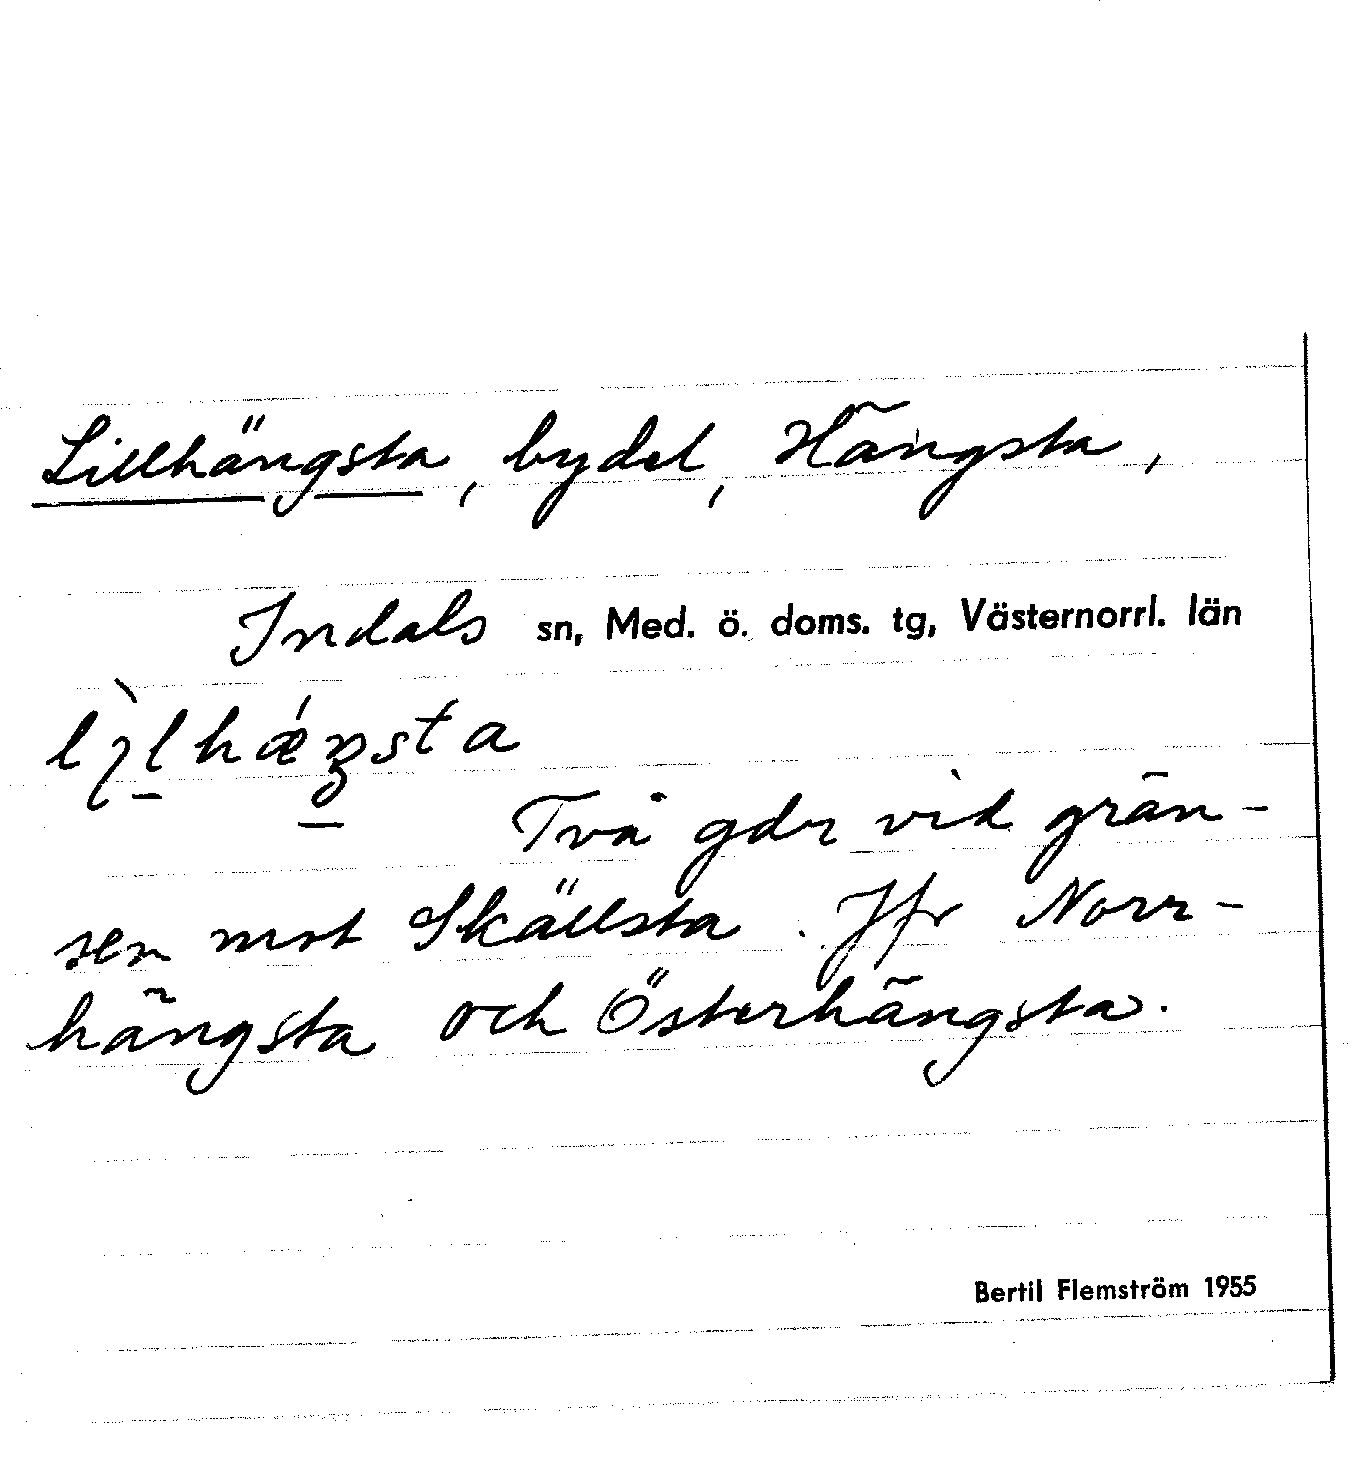 Lillhängsta, bydel, Hängsta,
Indals sn, Med. ö. doms. tg, Västernorrl. län
Två gdr vid grän-
sen mot Skällsta. Jfr Norr-
hängsta och Österhängsta.
Bertil Flemström 1955